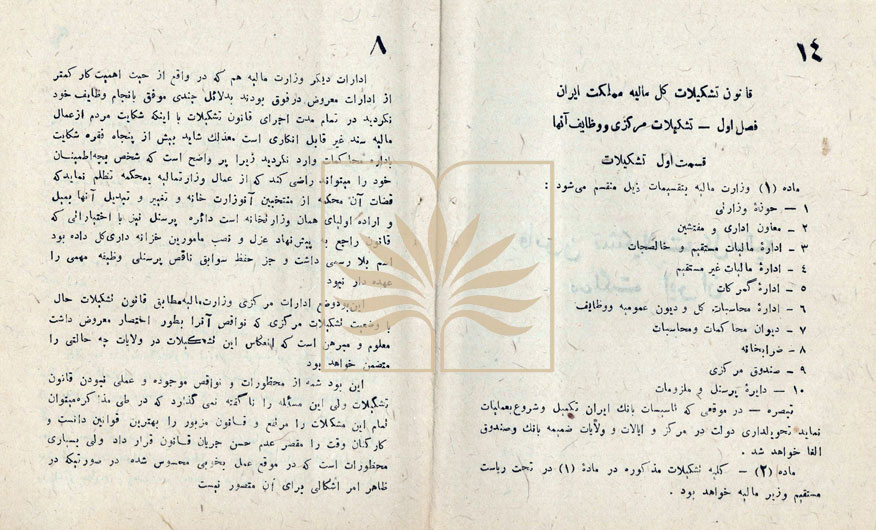 ١٤
قانون تشکیلات کل مالیه مملکت ایران
فصل اول — تشکیلات مرکزی ووظایف آنها
قسمت اول تشکیلات
ماده (١) وزارت مالیه بتقسیمات ذیل منقسم می‌شود :
١ — حوزهٔ وزارتی
٢ — معاون اداری و مفتشین
٣ — ادارهٔ مالیات مستقیم و خالصجات
٤ — ادارهٔ مالیات غیر مستقیم
٥ — ادارهٔ گمرکات
٦ — ادارهٔ محاسبات کل و دیون عمومیه ووظایف
٧ — دیوان محاکمات ومحاسبات
٨ — ضرابخانه
٩ — صندوق مرکزی
١٠ — دایرهٔ پرسنل و ملزومات
تبصره — در موقعی که تاسیسات بانک ایران تکمیل وشروع بعملیات
نماید تحویلداری دولت در مرکز و ایالات و ولایات ضمیمه بانک وصندوق
الفا خواهد شد .
ماده (٢) — کلیه تشکیلات مذکوره در مادهٔ (١) در تحت ریاست
مستقیم وزیر مالیه خواهد بود .
٨
ادارات دیگر وزارت مالیه هم که در واقع از حیث اهمیت کار کمتر
از ادارات معروض درفوق بودند بدلائل چندی موفق بانجام وظایف خود
نکردید در تمام مدت اجرای قانون تشکیلات با اینکه شکایت مردم ازعمال
مالیه سند غیر قابل انکاری است معذلک شاید بیش از پنجاه فقره شکایت
باداره محاکمات وارد نکردید زیرا پر واضح است که شخص بچه اطمینان
خود را میتواند راضی کند که از عمال وزارتمالیه بمحکمه تظلم نمایدکه
قضات آن محکمه از منتخبین آنوزارت خانه و تغییر و تبدیل آنها بمیل
و اراده اولیای همان وزارتخانه است دائره پرسنل نیز با اختیاراتی که
قانون راجع به پیش‌نهاد عزل و نصب مامورین خزانه داری‌کل داده بود
اسم بلا رسمی داشت و جز حفظ سوابق ناقص پرسنلی وظیفه مهمی را
عهده دار نبود
این‌بودوضع ادارات مرکزی وزارت‌مالیه‌مطابق قانون تشکیلات حال
با وضعیت تشکیلات مرکزی که نواقص آنرا بطور اختصار معروض داشت
معلوم و مبرهن است که انعکاس این تشکیلات در ولایات چه حالتی را
متضمن خواهد بود
این بود شمه از محظورات و نواقص موجوده و عملی نبودن قانون
تشکیلات ولی این مسئله را ناگفته نمی‌گذارد که در طی مذاکره‌میتوان
تمام این مشکلات را مرتفع و قانون مزبور را بهترین قوانین دانست و
کارکنان وقت را مقصر عدم حسن جریان قانون قرار داد ولی بسیاری
محظورات است که در موقع عمل بخوبی محسوس شده در صورتیکه در
ظاهر امر اشکالی برای آن متصور نیست